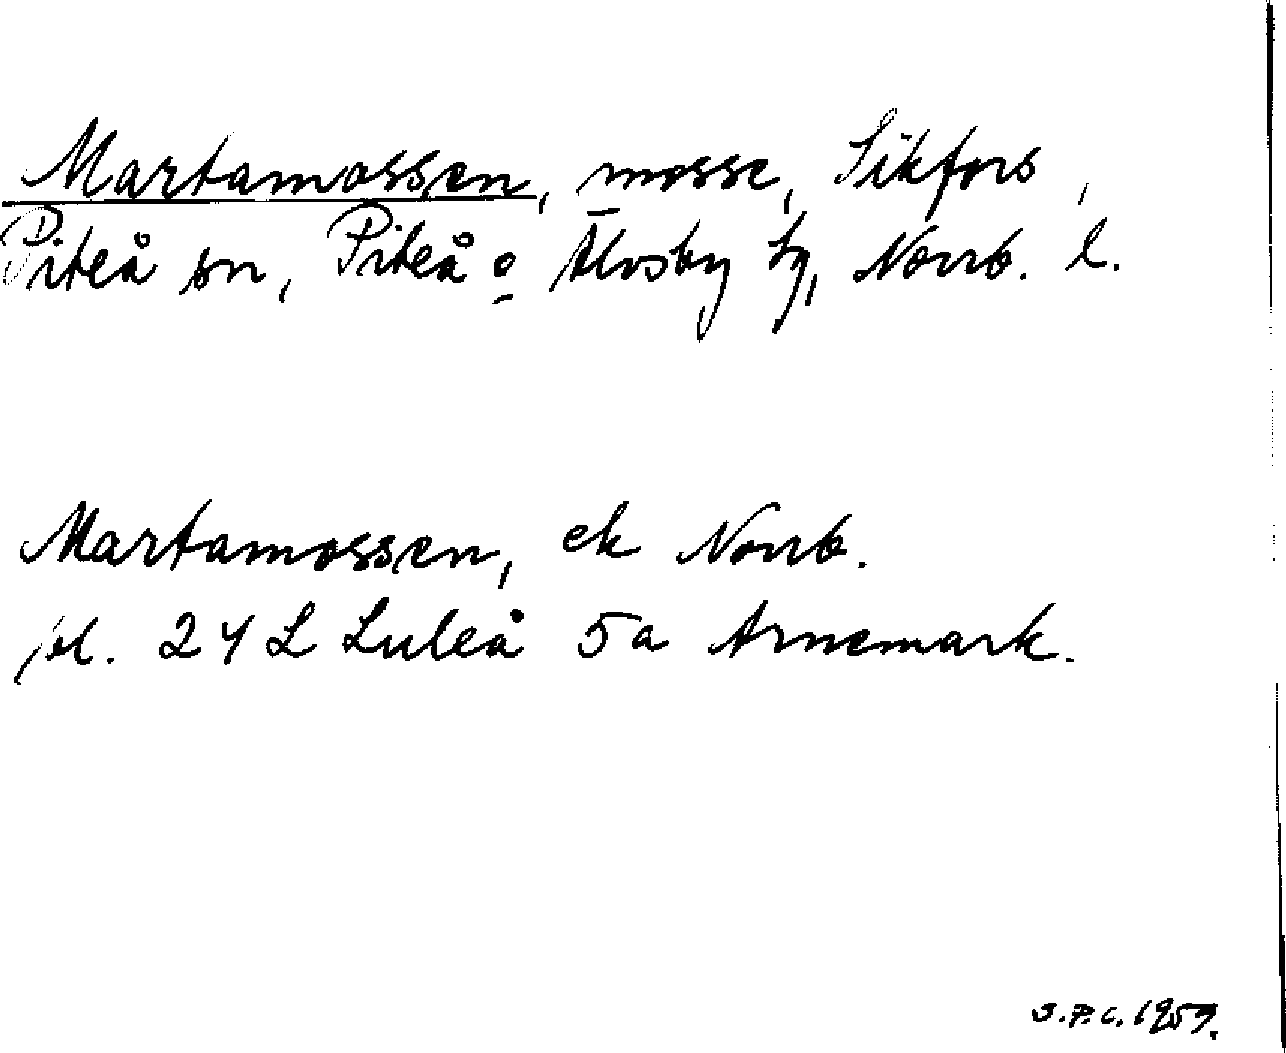 Martamossen, mosse, Sikfors,
Piteå sn, Piteå o Älvsby tg, Norrb. l.
Martamossen, ek Norrb.
bl. 24 L Luleå 5a Arnemark.
S.P.C. 1959.